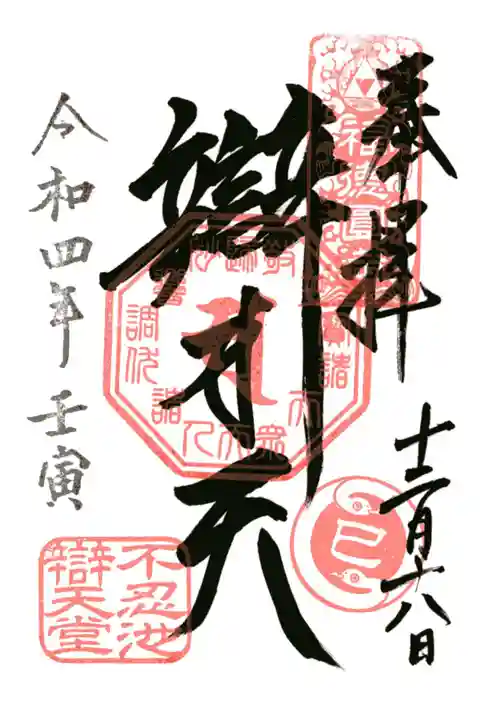 奉拝
十二月十八日
辯才天
令和四年壬寅
福徳圓
巳
不忍池
辯天堂